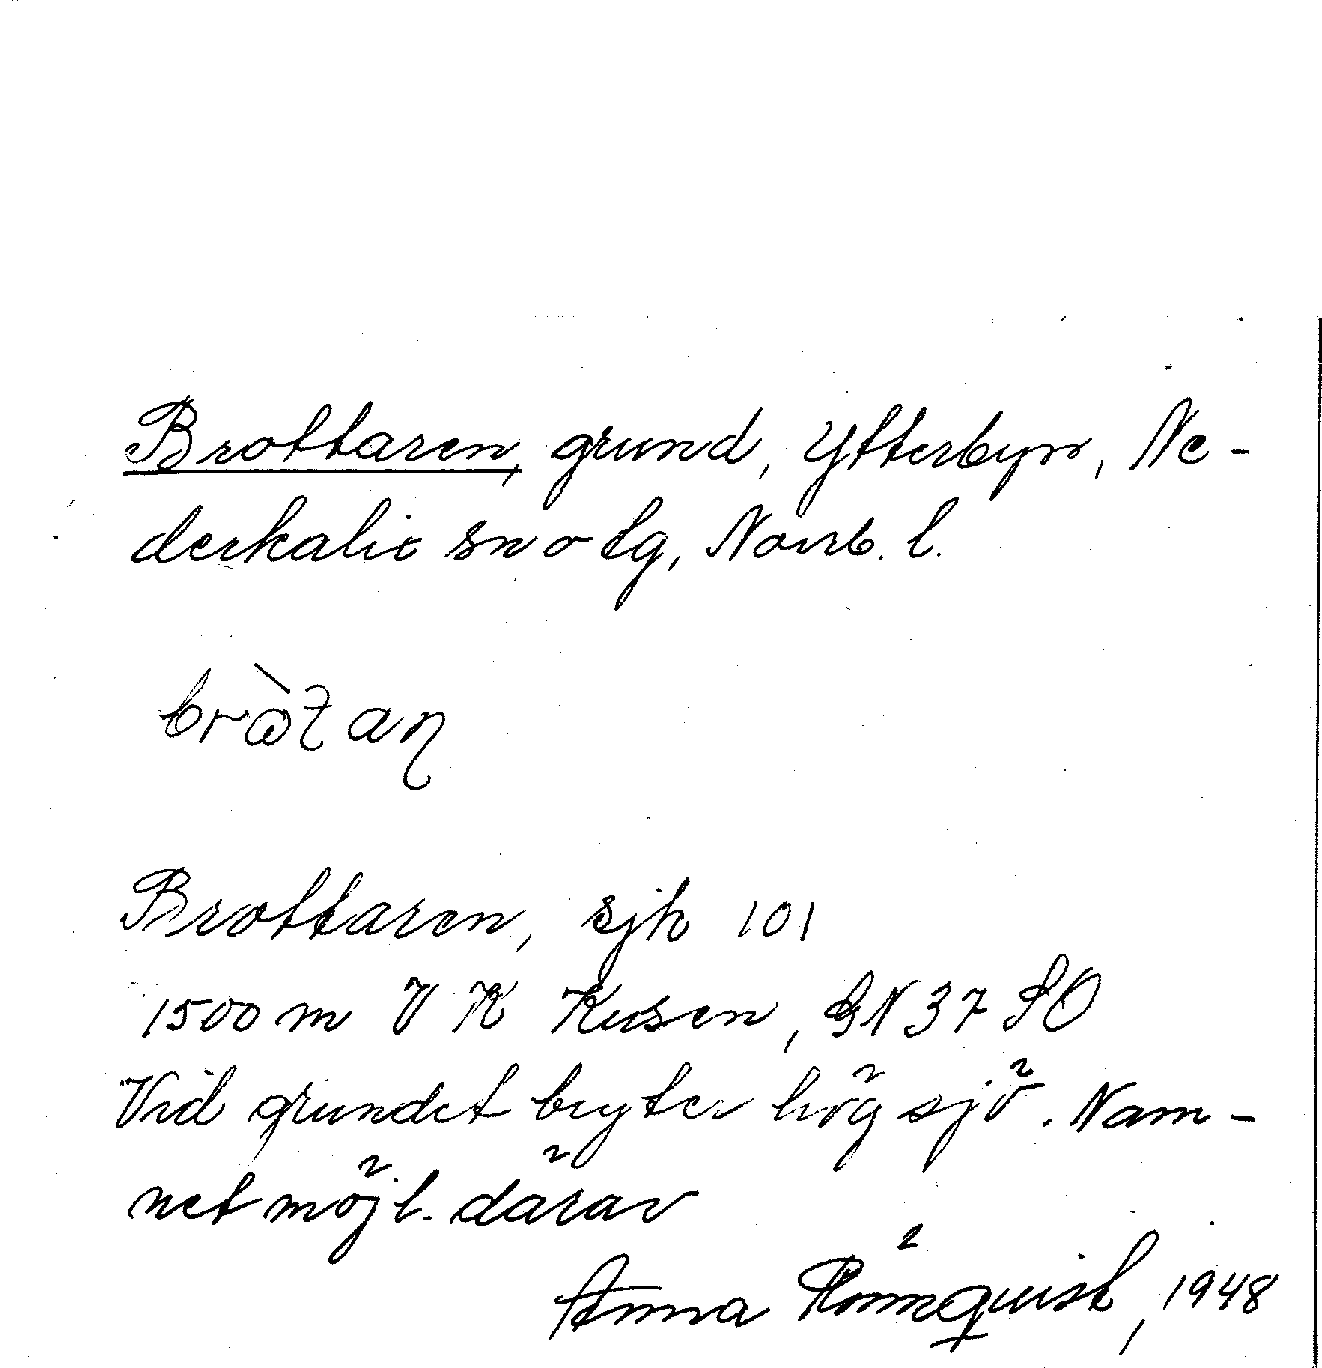 Brottaren, grund, Ytterbyn, Ne-
derkalix sn o tg, Norrb. l.
Brottaren, sjk 101
1500 m V K Kusen, GN 37 SO
Vid grundet bryter hög sjö. Nam-
net möjl. därav
Anna Rönnquist, 1948